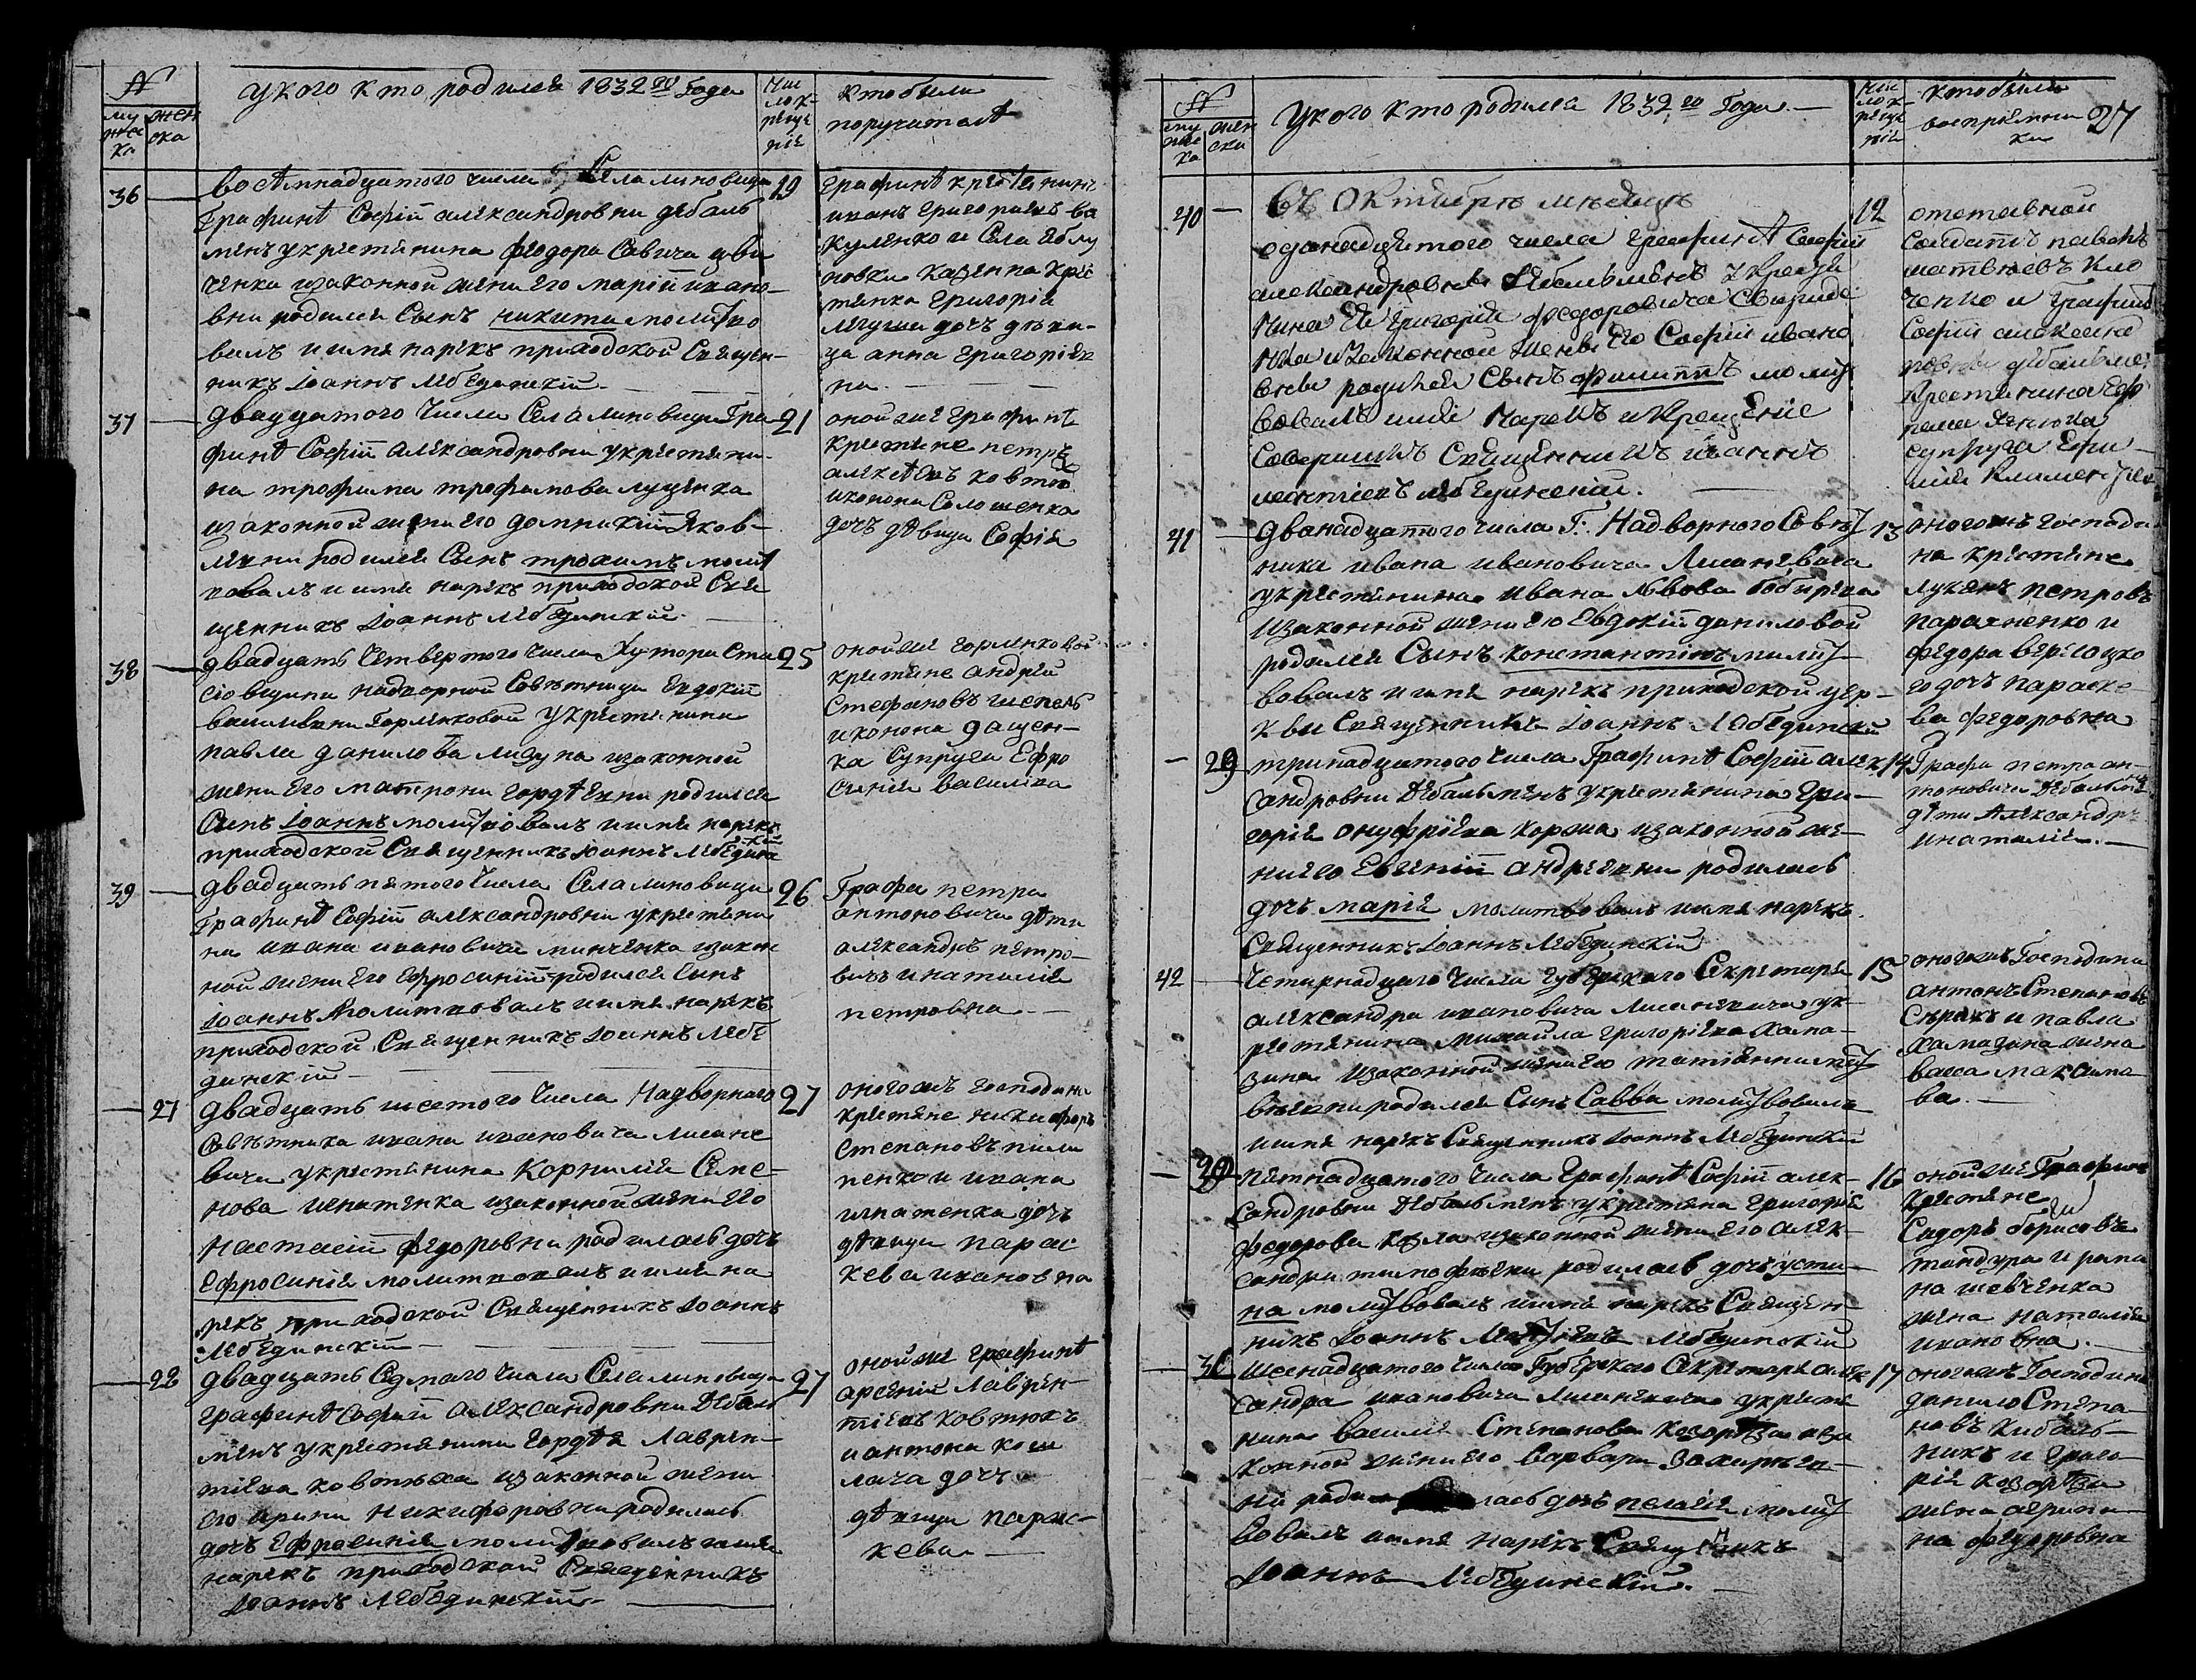 №
му
жес
ка
жен
ска
у кого кто родился 1832го Года
Чис
ло к-
рещи
нія
кто были
поручители
36
восемнадцатого числа Села линовици
19
Графинѣ Софіи александровни дебаль
менъ укрестянина феодора Савича
ченка изаконной жени его маріи ивано-
вни родился Сынъ никита молитво
валъ и имя нарекъ приходской Священ-
никъ Іоаннъ Лебединскій
графинѣ крестянинъ
иванъ григориевъ ва
куленко и Села яблу
новки казенна крес
тянка григорія
дочъ дѣви-
ца анна григоріев
на
37
двадцатого Числа Села линовици Гра-
21
финѣ Софіи александровни укрестяни-
на трофима трофимова луценка
изаконной жени его домникіи яков-
левни родился Сынъ трохимъ молит
вовалъ и имя нарекъ приходской Свя
щенникъ Іоаннъ Лебединскій
оной же графинѣ
крестяне петръ
алексѣевъ ковтюх
иконона Солошенка
дочъ дѣвица Софія
38
двадцать Четвертого Числа Хутора Ста
25
сіовщини надворной Совѣтници Евдокіи
васильвни Горленковой укрестянина
павла данилова лизуна изаконной
жени его матрони гордѣевни родился
Синъ Іоаннъ молитвовалъ и имя нарекъ
приходской Священникъ Іоаннъ Лебединскій
оной же горленковой
крестяне андрей
Стефановъ шепель
иконона дацен-
ка Супруга Ефро
синія василіва
39
двадцать пятого Числа Села линовици
26
Графинѣ Софіи александровни укрестяни
на ивана ивановича минченка изакон
ной жени его ефросиніи родился синъ
Іоаннъ Молитвовалъ и имя нарекъ
приходской Священникъ Іоаннъ Лебе
динскій
Графа петра
антоновича дѣти
александръ петро-
вичъ и наталія
петровна
27
двадцать шестого Числа Надворного
27
Совѣтника ивана ивановича лисане
вича укрестянина Корнилія Семе-
нова игнатенка изаконной жени его
Настасіи федоровни родилась дочъ
Ефросинія молитвовалъ и имя на
рекъ приходской Священникъ Іоаннъ
Лебединскій
оного же господина
крестяне никифоръ
Степановъ пили
пенко и ивана
игнатенка дочъ
дѣвица парас
кева ивановна
22
двадцать Седмаго Числа Села линовици
27
графинѣ Софіи александровни дебаль
менъ укрестянина гордѣя Лаврен-
тіева ковтюха изаконной жени
его ирини никифоровни родилась
дочъ Ефросинія молитвовалъ и имя
нарекъ приходской Священникъ
Іоаннъ Лебединскій
оной же графинѣ
арсеній Лаврен-
тіевъ ковтюхъ
и антона кош
лача дочъ
дѣвица парас-
кева
№
му
жес
ка
жен
ска
У кого кто родился 1832го Года
Чис
ло к-
рещ
нія
кто были
воспріемни
ки
27
40
Въ Октябрѣ мѣсяцѣ
12
одинадцятого числа графинѣ Софіи
александровнѣ Дебальменъ укрестя
нина ея григорія федоровича Свирида
нка изаконной жены его Софіи ивано
вны родился Сынъ филиппъ молит
вовалъ имя нарекъ и крещеніе
Совершилъ Священникъ иоаннъ
лебединскій
отставной
Солдатъ павелъ
матвіевъ кло
ченко и графинѣ
Софіи александ
ровны дебальмен
крестянина Еф
рема
супруга Ефи
мія
41
дванадцатого числа Г: Надворного Совѣт
13
ника ивана ивановича Лисаневича
укрестянина ивана Львова бобирева
изаконной жени его Евдокіи даниловой
родился Сынъ константінъ милит
вовалъ и имя нарекъ приходской цер-
кви Священникъ Іоаннъ Лебединскій
оного жъ господи
на крестяне
лукянъ петровъ
парахненко и
федора
го дочъ параске
ва федоровна
29
тринадцатого числа Графинѣ Софіи алек
14
сандровни Дебальменъ укрестянина гри-
горія онуфрієва коржа изаконной же-
ни его Евгеніи андрієвни родилась
дочъ марія молитвовалъ и имя нарекъ
Священникъ Іоаннъ Лебединскій
Графа петра ан-
тоновича Дебальмена
дѣти Александръ
и наталія
42
Четирнадцаго числа губернскаго Секретаря
15
александра ивановича лисаневича ук-
рестянина михайла григорієва хама-
зина изаконной жени его татіянни
вѣевни родился Синъ Савва молитвовалъ
и имя нарекъ Священникъ Іоаннъ Лебединскій
оного жъ Господина
антонъ Степановъ
Сѣрикъ и павла
Хамазина жена
васса максимо
ва
30
Пятнадцатого Числа Графинѣ Софіи алек-
16
сандровни Дебальменъ укрестяна григорія
федорова козла изаконной жени его алек-
сандри тимофѣевни родилась дочъ усти-
на молитвовалъ и имя нарекъ Священ-
никъ Іоаннъ Лебединскій
оной же Графинѣ
крестяне
Сидоръ борисовъ
тандура и рома
на шевченка
жена наталія
ивановна
31
Шеснадцатого Числа Губернскаго Секретаря алек
17
сандра ивановича Лисаневича укрестя
нина василія Степанова козорѣза иза
конной жени его варвари Захарієв-
ни роди лась дочъ пелагія молит
вовалъ и имя нарекъ Священникъ
Іоаннъ Лебединскій
оного жъ Господина
данило Степа-
новъ кибаль-
никъ и григо-
рія козорѣза
жена агрипи-
на федоровна